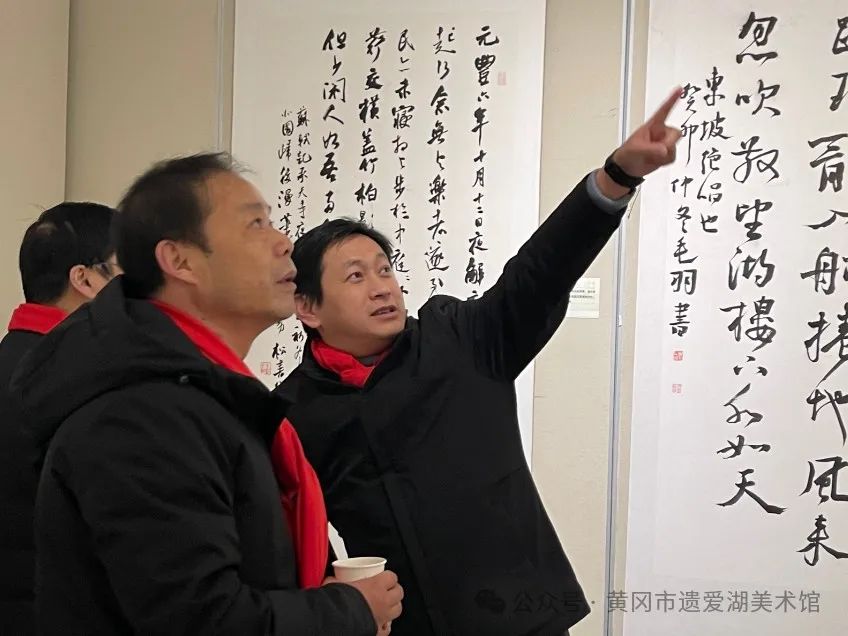 跳珠亂入船捲地風来
忽吹散望湖樓下水如天
東坡絕倡也
癸卯仲冬毛羽書
元豐六年十月十二日夜解
起行念無与樂者遂至
民亦未寢相与步於中庭
荇交橫蓋竹柏
但少闲人如吾
蘇軾記承天寺夜
公众号 · 黄冈市遗爱湖美术馆